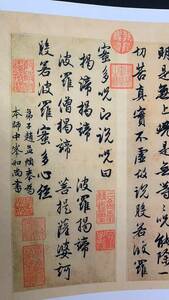 明是無上咒是無等等咒能除一
切苦真實不虛故說般若波羅
蜜多咒即說咒曰
揭諦揭諦 波羅揭諦
波羅僧揭諦 菩提薩婆訶
般若波羅蜜多心經
弟子趙孟頫奉為
本師中峯和尚書